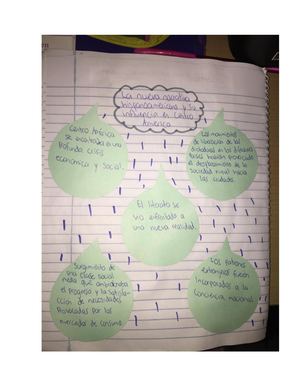 La nueva narrativa
hispanoamericana y su
influencia en Centro
América
Centro América
se encontraba en una
Profunda crisis
económica y social.
Los movimientos
de liberación de los
en los diferentes
países habían provocado
el desplazamiento de la
Sociedad rural hacia
las ciudades.
El literato se
vio enfrentado a
una nueva realidad.
Surgimiento de
una clase social
media que ambicionaba
el progreso y la satisfa-
cción de necesidades
Provocadas por los
mercados de consumo
Los patrones
extranjeros fueron
incorporados a la
Conciencia nacional.